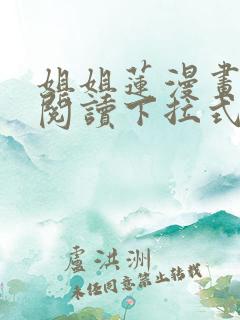 姐姐蓮漫畫
閱讀下拉式
盧洪洲
未經同意禁止轉載